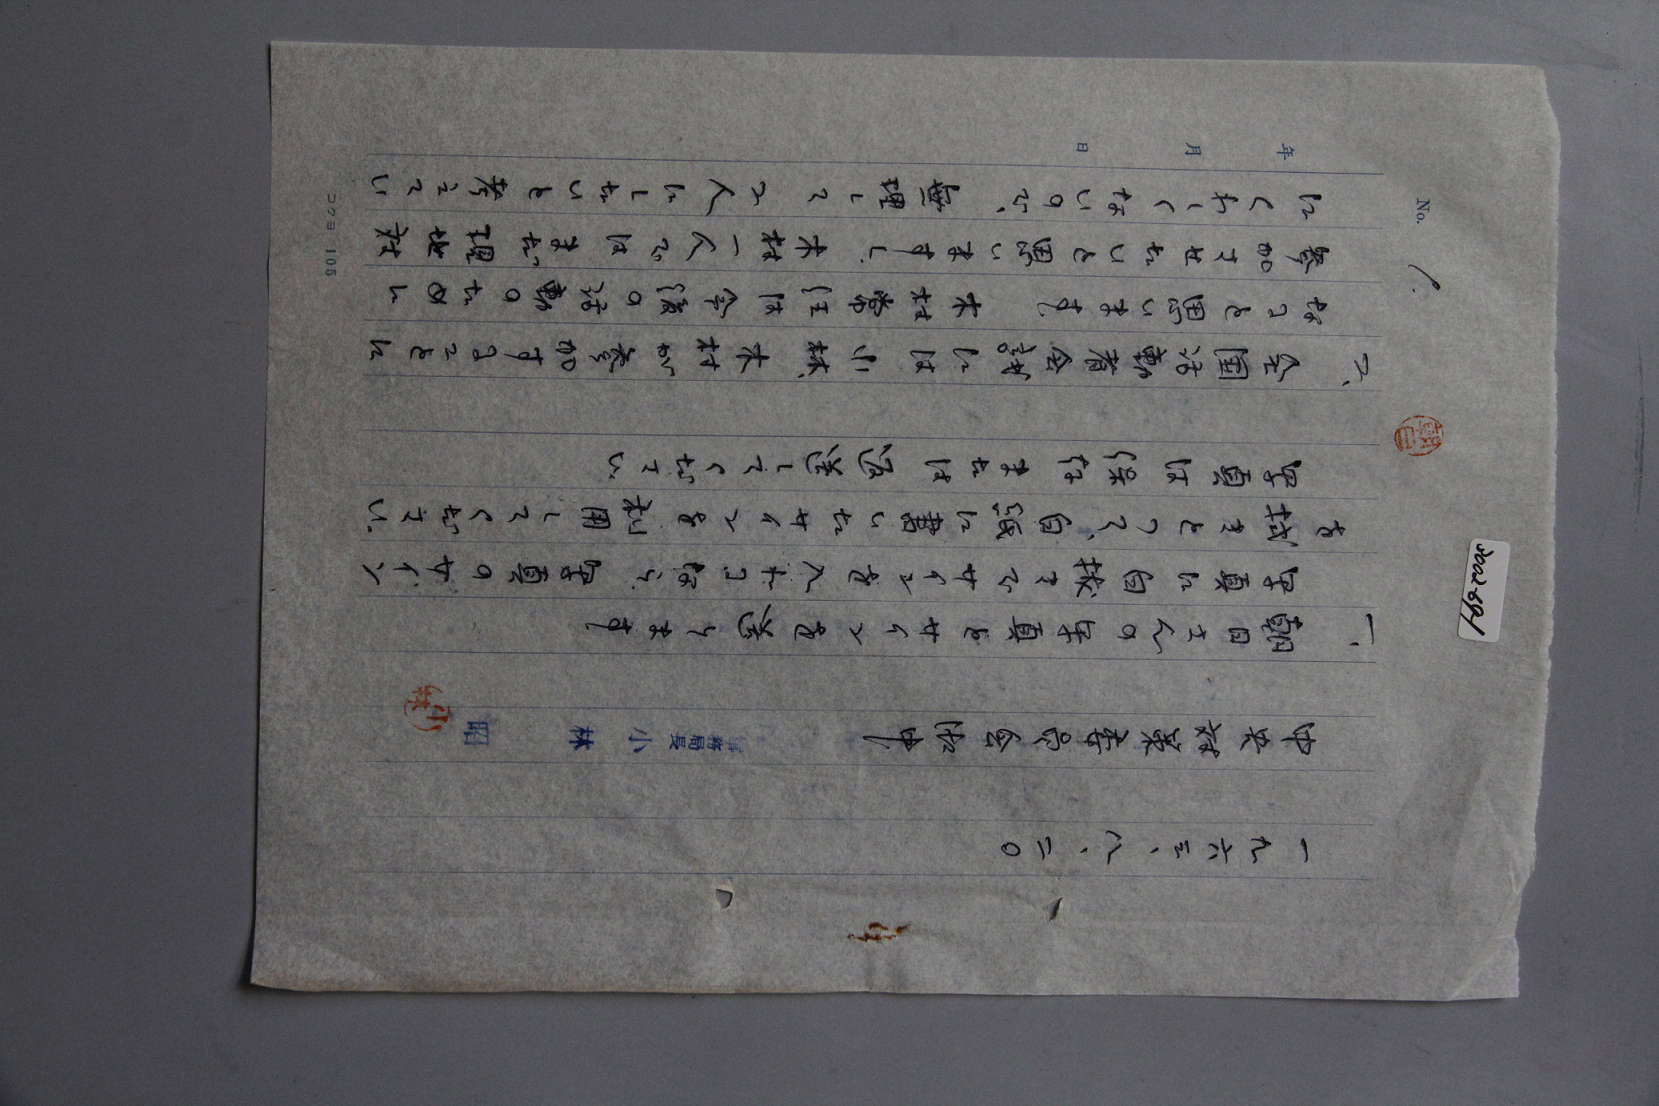 No. 1.
年 月 日
一九六三、八、二〇
中央対策委員会御中
事務局長 小林 昭
小林
一、朝日さんの写真とサインを送ります
写真に サインを入れるなら、写真のサイン
を とって、自筆に書いたサインを利用してください。
写真は保存または返送してください
二、全国活動者会議には小林、木村が参加することに
なると思います 木村常任は今後の活動のために
参加させたいと思いますし、木村一人ではまだ現地対
にくわしくないので、無理して二人にしたいと考えてい
コクヨ 105